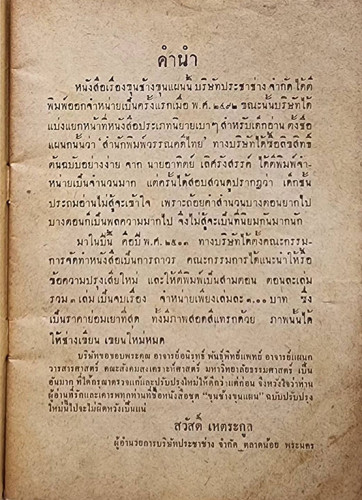 คำนำ
หนังสือเรื่องขุนช้างขุนแผนนี้ บริษัทประชาช่าง จำกัด ได้ตี
พิมพ์ออกจำหน่ายเป็นครั้งแรกเมื่อ พ.ศ. ๒๔๙๒ ขณะนั้นบริษัทได้
แบ่งแยกหน้าที่หนังสือประเภทนิยายเบาๆ สำหรับเด็กอ่าน ตั้งชื่อ
แผนกนั้นว่า "สำนักพิมพ์วรรณคดีไทย" ทางบริษัทได้ซื้อลิขสิทธิ์
ต้นฉบับอย่างง่าย จาก นายอาทิตย์ เลิศรังสรรค์ ได้ตีพิมพ์จำ-
หน่ายเป็นจำนวนมาก แต่ครั้งได้สอบสวนดูปรากฏว่า เด็กชั้น
ประถมอ่านไม่สู้จะเข้าใจ เพราะถ้อยคำสำนวนบางตอนยากไป
บางตอนก็เป็นพลความมากไป จึงไม่สู้จะเป็นที่นิยมกันมากนัก
มาในปีนี้ คือปี พ.ศ. ๒๕๐๓ ทางบริษัทได้ตั้งคณะกรรม-
การจัดทำหนังสือเป็นการถาวร คณะกรรมการได้แนะนำให้รื้อ
ข้อความปรุงเสียใหม่ และให้ตีพิมพ์เป็นสามตอน ตอนละเล่ม
รวม ๓ เล่มเป็นจบเรื่อง จำหน่ายเพียงเล่มละ ๓.๐๐ บาท ซึ่ง
เป็นราคาย่อมเยาที่สุด ทั้งมีภาพสอดสีแทรกด้วย ภาพนั้นได้
ให้ช่างเขียน เขียนใหม่หมด
บริษัทขอขอบพระคุณ อาจารย์อนิรุทธ์ พันธุ์ทิพย์แพทย์ อาจารย์แผนก
วารสารศาสตร์ คณะสังคมสงเคราะห์ศาสตร์ มหาวิทยาลัยธรรมศาสตร์ เป็น
อันมาก ที่ได้กรุณาตรวจแก้และปรับปรุงใหม่ให้ดีกว่าแต่ก่อน จึงหวังใจว่าท่าน
ผู้อ่านที่รักและเคารพทุกท่านที่ซื้อหนังสือชุด "ขุนช้างขุนแผน" ฉบับปรับปรุง
ใหม่นี้ไปจะไม่ผิดหวังเป็นแน่
สวัสดิ์ เหตระกูล
ผู้อำนวยการบริษัทประชาช่าง จำกัด ตลาดน้อย พระนคร